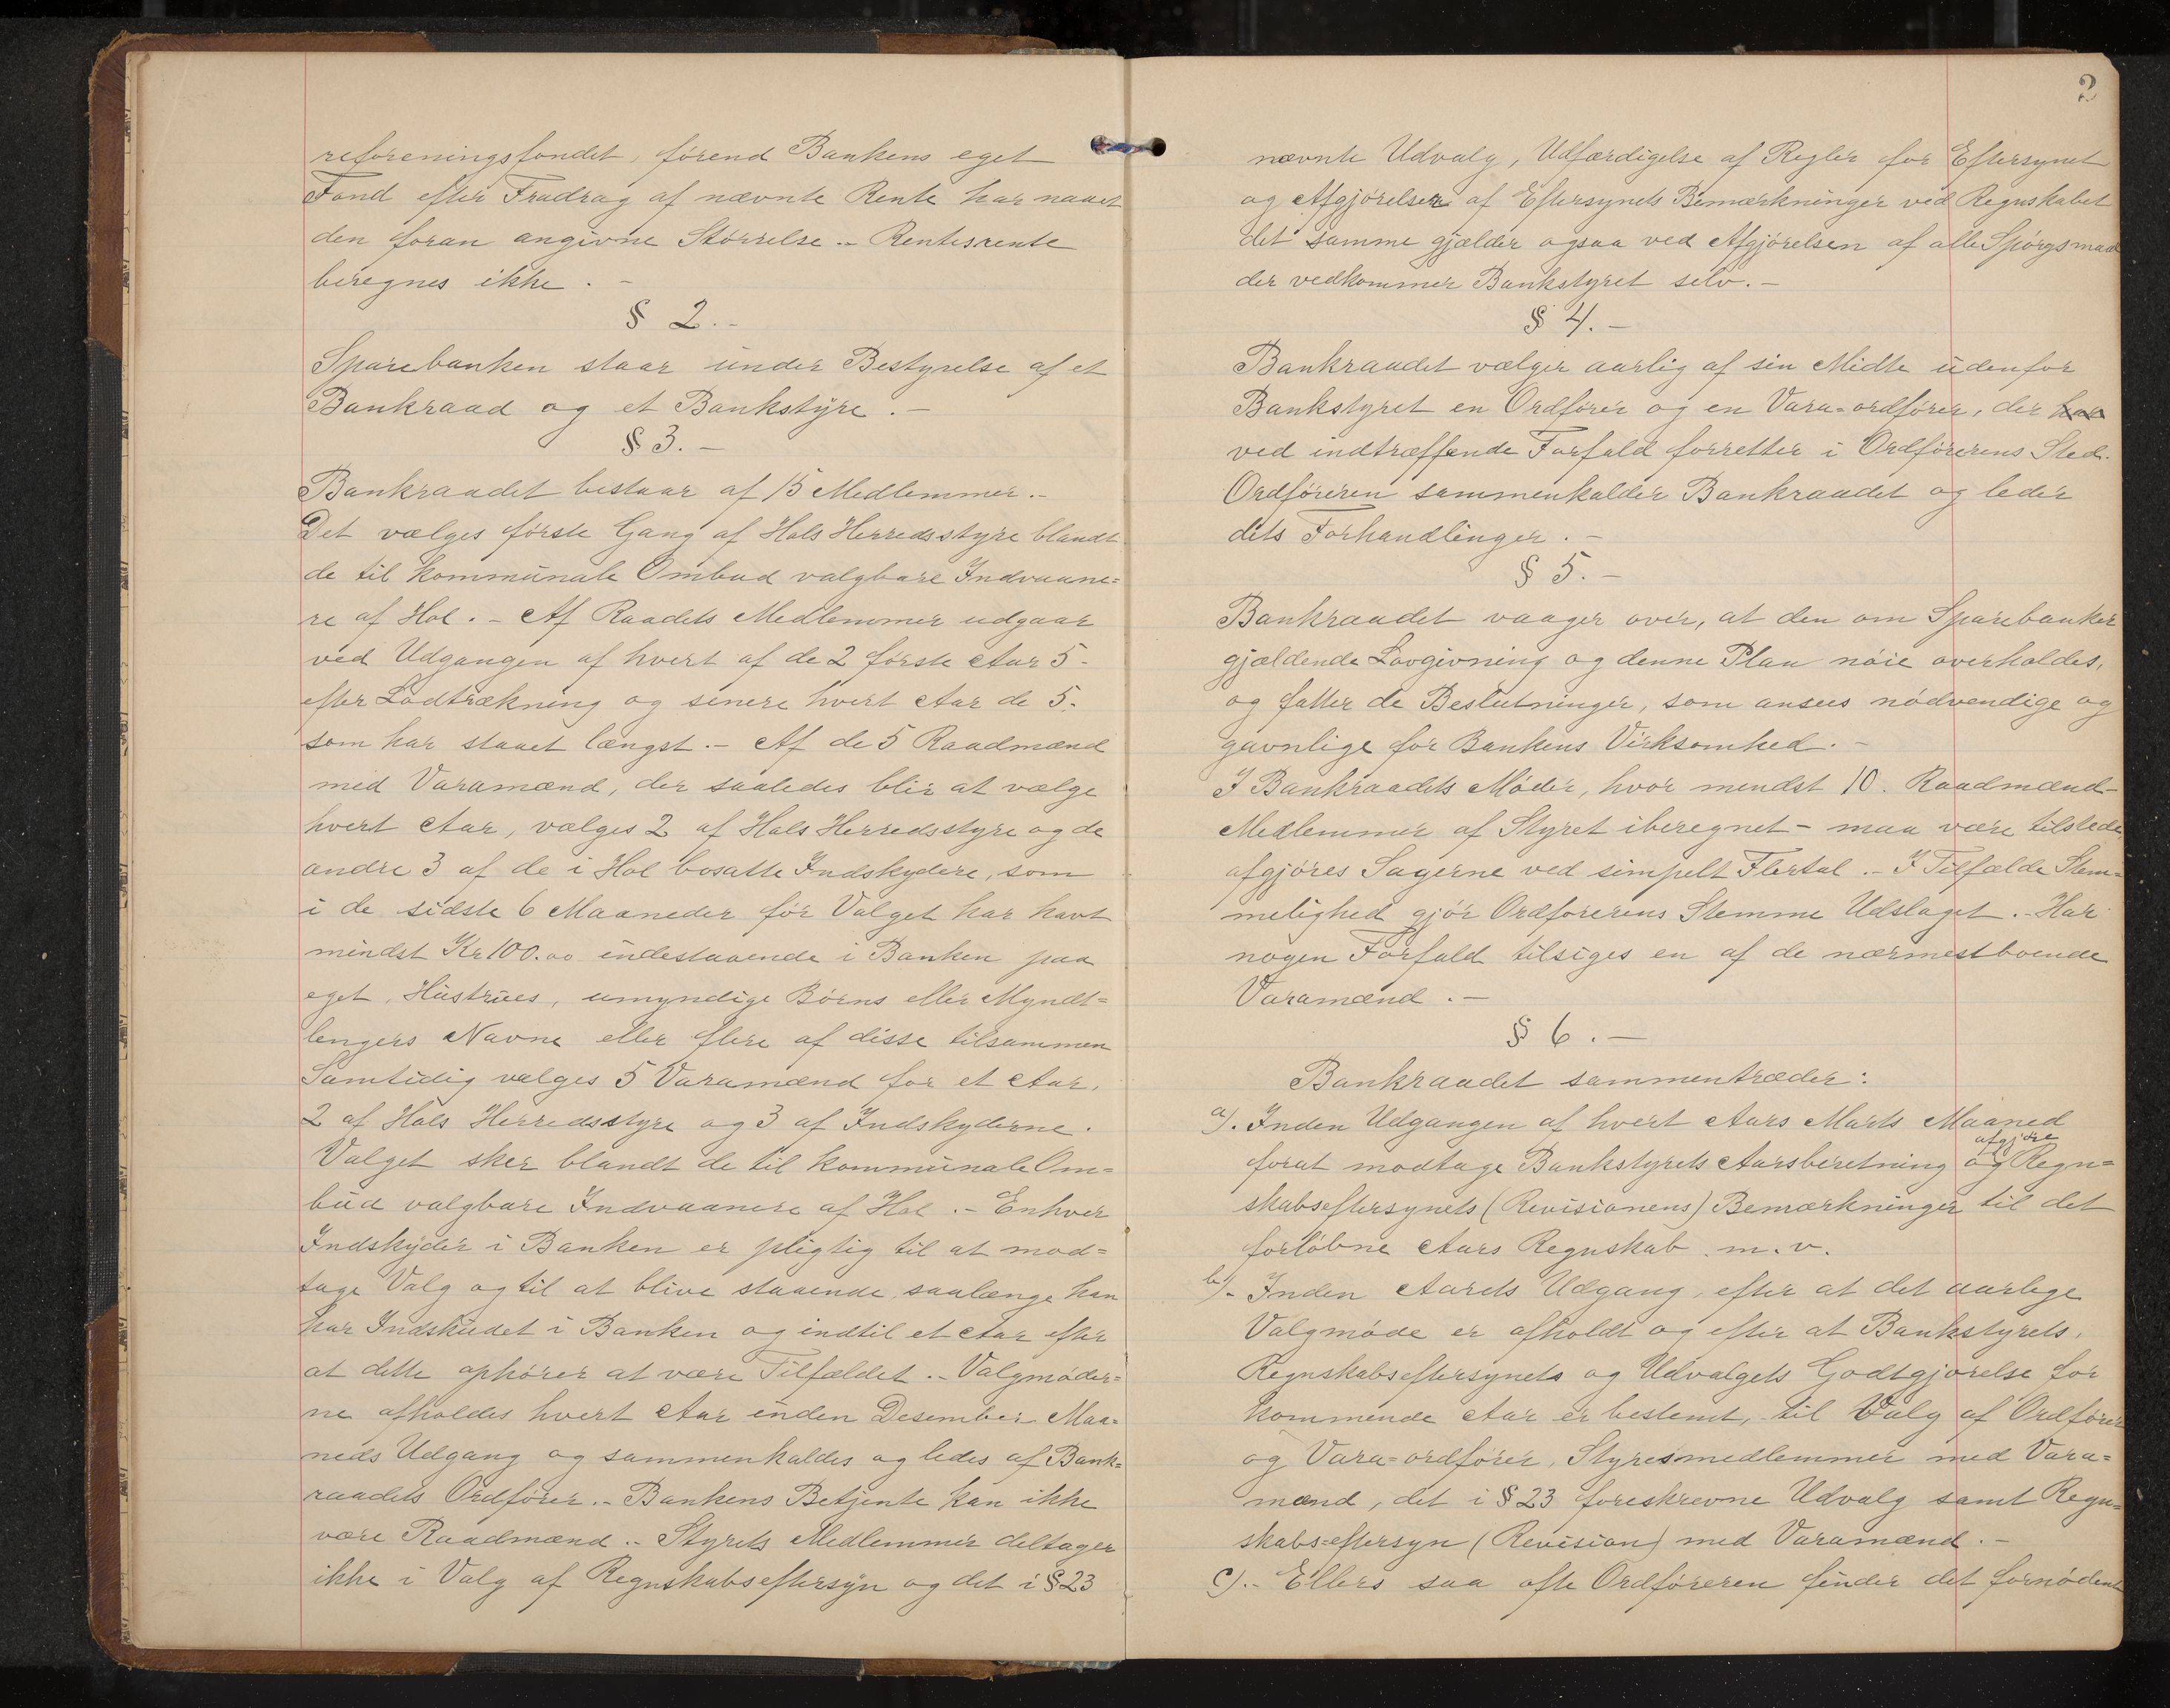 reforeningsfondet, førend Bankens eget
Fond efter Fradrag af nævnte Rente har naaet
den foran angivne Størrelse.- Rentesrente
beregnes ikke. -
§ 2.-
Sparebanken staar under Bestyrelse af et
Bankraad og et Bankstyre. -
§ 3. -
Bankraadet bestaar af 15 Medlemmer. -
Det vælges første Gang af Hols Herredsstyre blandt
de til kommunale Ombud valgbare Indvaane=
re af Hol. - Af Raadets Medlemmer udgaar
ved Udgangen af hvert af de 2 første Aar 5-
efter Lodtrækning og senere hvert Aar de 5.
som har staaet længst. - Af de 5 Raadmænd
med Varamænd, der saaledes blir at vælge
hvert Aar, vælges 2 af Hols Herredsstyre og de
andre 3 af de i Hol bosatte Indskydere, som
i de sidste 6 Maaneder før Valget har havt
mindst Kr 100.00 indestaaende i Banken paa
eget, Hustrues, umyndige Børns eller Myndt=
lengers Navne eller flere af disse tilsammen
Samtidig vælges 5 Varamænd for et Aar,
2 af Hols Herredsstyre og 3 af Indskyderne.
Valget sker blandt de til kommunale Om=
bud valgbare Indvaanere af Hol. - Enhver
Indskyder i Banken er pligtig til at mod=
tage Valg og til at blive staaende, saalænge han
har Indskudet i Banken og indtil et Aar efter
at dette ophører at være Tilfældet. - Valgmøder=
ne afholdes hvert Aar inden Desember Maa=
neds Udgang og sammenkaldes og ledes af Bank=
raadets Ordfører. - Bankens Betjente kan ikke
være Raadmænd. - Styrets Medlemmer deltager
ikke i Valg af Regnskabseftersyn og det i § 23
2
nævnte Udvalg, Udfærdigelse af Regler for Eftersynet
og Afgjørelsen af Eftersynets Bemærkninger ved Regnskabet
det samme gjælder ogsaa ved Afgjørelsen af alle Spørgsmaal
der vedkommer Bankstyret selv. -
§ 4. -
Bankraadet vælger aarlig af sin Midte udenfor
Bankstyret en Ordfører og en Vara=ordfører, der har
ved indtræffende Forfald forretter i Ordførerens Sted.
Ordføreren sammenkalder Bankraadet og leder
dets Forhandlinger. -
§ 5. -
Bankraadet vaager over, at den om Sparebanker
gjældende Lovgivning og denne Plan nøie overholdes,
og fatter de Beslutninger, som ansees nødvendige og
gavnlige for Bankens Virksomhed. -
I Bankraadets Møder, hvor mindst 10. Raadmænd -
Medlemmer af Styret iberegnet - maa være tilstede,
afgjøres Sagerne ved simpelt Flertal. - I Tilfælde Stem=
melighed gjør Ordførerens Stemme Udslaget. - Har
nogen Forfald tilsiges en af de nærmestboende
Varamænd. -
§ 6. -
Bankraadet sammentræder:
a). Inden Udgangen af hvert Aars Marts Maaned
afgjøre
forat modtage Bankstyrets Aarsberetning og Regn=
skabseftersynets (Revisionens) Bemærkninger til det
forløbne Aars Regnskab m. v.
b). Inden Aarets Udgang, efter at det aarlege
Valgmøde er afholdt og efter at Bankstyrets,
Regnskabseftersynets og Udvalgets Godtgjørelse for
kommende Aar er bestemt, til Valg af Ordfører
og Vara=ordfører, Styresmedlemmer med Vara=
mænd, det i § 23 foreskrevne Udvalg samt Regn=
skabs=eftersyn (Revision) med Varamænd. -
c). - Ellers saa ofte Ordføreren finder det fornødent